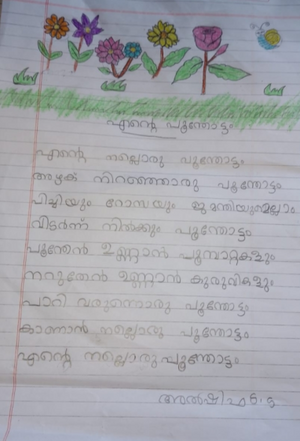 എന്റെ പൂന്തോട്ടം
എന്റെ നല്ലൊരു പൂന്തോട്ടം
അഴക് നിറഞ്ഞൊരു പൂന്തോട്ടം
പിച്ചിയും റോസയും ജമന്തിയുമെല്ലാം
വിടർന്ന് നിൽക്കും പൂന്തോട്ടം
പൂന്തേൻ ഉണ്ണാൻ പൂമ്പാറ്റകളും
നറുതേൻ ഉണ്ണാൻ കുരുവികളും
പാറി വരുന്നൊരു പൂന്തോട്ടം
കാണാൻ നല്ലൊരു പൂന്തോട്ടം
എന്റെ നല്ലൊരു പൂന്തോട്ടം